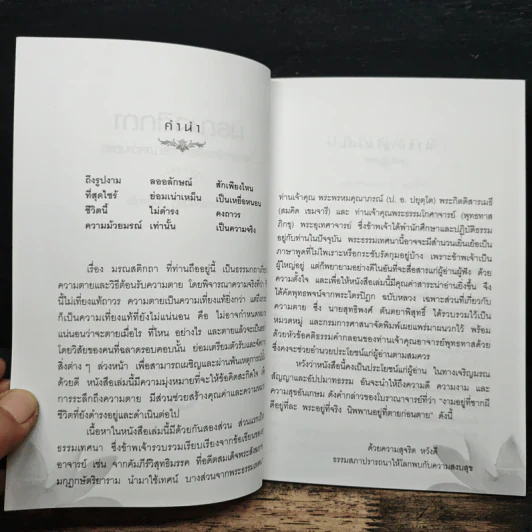 คำนำ
ถึงรูปงาม ลออลักษณ์ สักเพียงไหน
ที่สุดไซร้ ย่อมเน่าเหม็น เป็นเหยื่อหนอน
ชีวิตนี้ ไม่ดำรง คงถาวร
ความม้วยมรณ์ เท่านั้น เป็นความจริง
เรื่อง มรณสติกถา ที่ท่านถืออยู่นี้ เป็นธรรมกถาเกี่ยว
ความตายและวิธีต้อนรับความตาย โดยพิจารณาความจริงที่ว่า
นี้ไม่เที่ยงแท้ถาวร ความตายเป็นความเที่ยงแท้ยิ่งกว่า แต่ถึงกระ
ก็เป็นความเที่ยงแท้ที่ยังไม่แน่นอน คือ ไม่อาจกำหนด
แน่นอนว่าจะตายเมื่อไร ที่ไหน อย่างไร และตายแล้วจะเป็น
โดยวิสัยของคนที่ฉลาดรอบคอบนั้น ย่อมเตรียมตัวรับและจัดการ
สิ่งต่าง ๆ ล่วงหน้า เพื่อสามารถเผชิญและผ่านพ้นเหตุการณ์
ด้วยดี หนังสือเล่มนี้มีความมุ่งหมายที่จะให้ข้อคิดสะกิดใจ
การระลึกถึงความตาย มีส่วนช่วยสร้างคุณค่าและความ
ชีวิตที่ยังดำรงอยู่และดำเนินต่อไป
เนื้อหาในหนังสือเล่มนี้มีด้วยกันสองส่วน ส่วนแรกเป็น
ธรรมเทศนา ซึ่งข้าพเจ้ารวบรวมเรียบเรียงจากข้อเขียนของ
อาจารย์ เช่น จากคัมภีร์วิสุทธิมรรค ที่อดีตสมเด็จพระสังฆราช
มกุฏกษัตริยาราม นำมาใช้เทศน์ บางส่วนจากพระธรรมเทศนา
ท่านเจ้าคุณ พระพรหมคุณาภรณ์ (ป. อ. ปยุตฺโต) พระกิตติสารเมธี
(สมคิด เขมจารี) และ ท่านเจ้าคุณพระธรรมโกศาจารย์ (พุทธทาส
ภิกขุ) พระอุเทศาจารย์ ซึ่งข้าพเจ้าได้พำนักศึกษาและปฏิบัติธรรม
อยู่กับท่านในปัจจุบัน พระธรรมเทศนานี้อาจจะมีสำนวนเยิ่นเย้อเป็น
ภาษาพูดที่ไม่ไพเราะหรือกระชับรัดกุมอยู่บ้าง เพราะข้าพเจ้าเป็น
ผู้ใหญ่อยู่ แต่ก็พยายามอย่างดีในอันที่จะสื่อสารแก่ผู้อ่านผู้ฟัง ด้วย
ความตั้งใจ และเพื่อให้หนังสือเล่มนี้มีคุณค่าสาระน่าอ่านยิ่งขึ้น จึง
ได้คัดพุทธพจน์จากพระไตรปิฎก ฉบับหลวง เฉพาะส่วนที่เกี่ยวกับ
ความตาย ซึ่ง นายสุทธิพงศ์ ตันตยาพิศุทธิ์ ได้รวบรวมไว้เป็น
หมวดหมู่ และกรมการศาสนาจัดพิมพ์เผยแพร่มาผนวกไว้ พร้อม
ด้วยหัวข้อคติธรรมคำกลอนของท่านเจ้าคุณอาจารย์พุทธทาสด้วย
ซึ่งคงจะช่วยอำนวยประโยชน์แก่ผู้อ่านตามสมควร
หวังว่าหนังสือนี้คงเป็นประโยชน์แก่ผู้อ่าน ในทางเจริญมรณ
สัญญาและอัปปมาทธรรม อันจะนำให้ถึงความดี ความงาม และ
ความสุขอันเกษม ดังคำกล่าวของโบราณาจารย์ที่ว่า "งามอยู่ที่ซากผี
ดีอยู่ที่ละ พระอยู่ที่จริง นิพพานอยู่ที่ตายก่อนตาย" ดังนี้
ด้วยความสุจริต หวังดี
ธรรมสภาปรารถนาให้โลกพบกับความสงบสุข